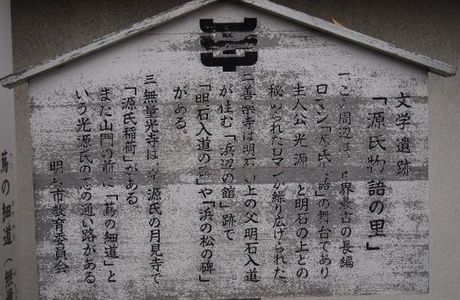 文学遺跡
「源氏物語の里」
一この周辺は世界最古の長編
ロマン「源氏物語」の舞台であり
主人公光源氏と明石の上との
秘められたロマンが綴り広げられた
二善楽寺は明石の上の父明石入道
が住む「浜辺の館」跡で
「明石入道の碑」や「浜の松の碑」
がある。
三無量光寺は源氏の月見寺で
「源氏稲荷」がある
また山門の前に「蔦の細道」と
いう光源氏の恋の通い路がある
明石市教育委員会
蔦の細道（無